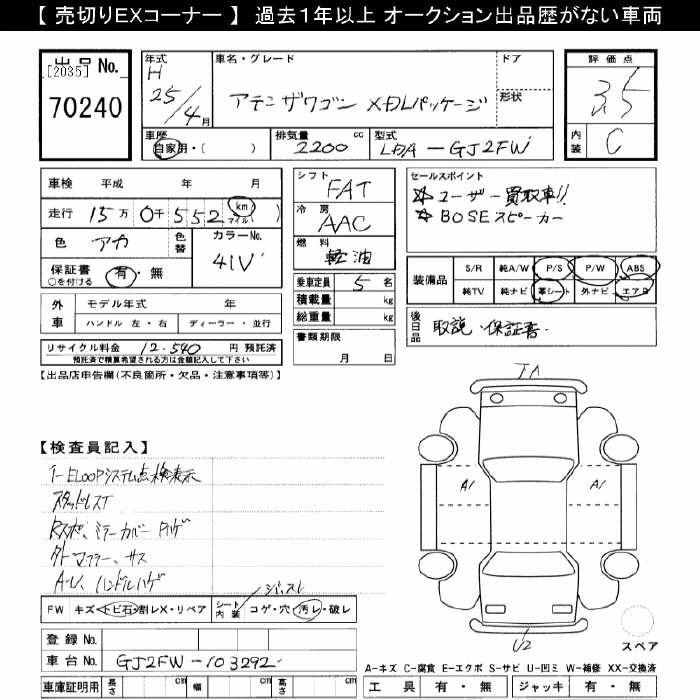 【 売切りEXコーナー 】 過去１年以上 オークション出品歴がない車両
出品 No.
[2035]
70240
年式
H
25/4月
車名・グレード
ドア
アテンザワゴン XDLパッケージ
形状
評価点
3.5
内装
C
車歴
自家用・( )
排気量
2200 cc
型式
LDA-GJ2FW
車検 平成 年 月
走行 15万0千552 km マイル( )
色 アカ
色替
カラーNo.
41V
保証書
○を付ける
有・無
シフト
FAT
冷房
AAC
燃料
軽油
セールスポイント
☆ ユーザー買取車!!
☆ BOSEスピーカー
装備品
S/R 純A/W P/S P/W ABS
純TV 純ナビ 革シート 外ナビ エアB
乗車定員 5 名
積載量 kg
総重量 kg
外車
モデル年式 年
ハンドル 左・右
ディーラー・並行
後日品
取説・保証書
リサイクル料金 12,540 円 預託済
預託済で積算希望される方は金額記入して下さい
書類期限
月 日
【出品店申告欄(不良箇所・欠品・注意事項等)】
【検査員記入】
i-ELOOPシステム点検表示
スタッドレスT
Rスポ、ミラーカバー
マフラー、サス
ハンドルハゲ
FW キズ・トビ石・割レX・リペア
シート内装
コゲ・穴・汚レ・破レ
登録 No.
車台 No. GJ2FW-103292
車庫証明用 長さ cm 幅 cm 高さ cm
A1
A1
U2
スペア
A-キズ C-腐食 E-エクボ S-サビ U-凹ミ W-補修 XX-交換済
工具 有・無 ジャッキ 有・無